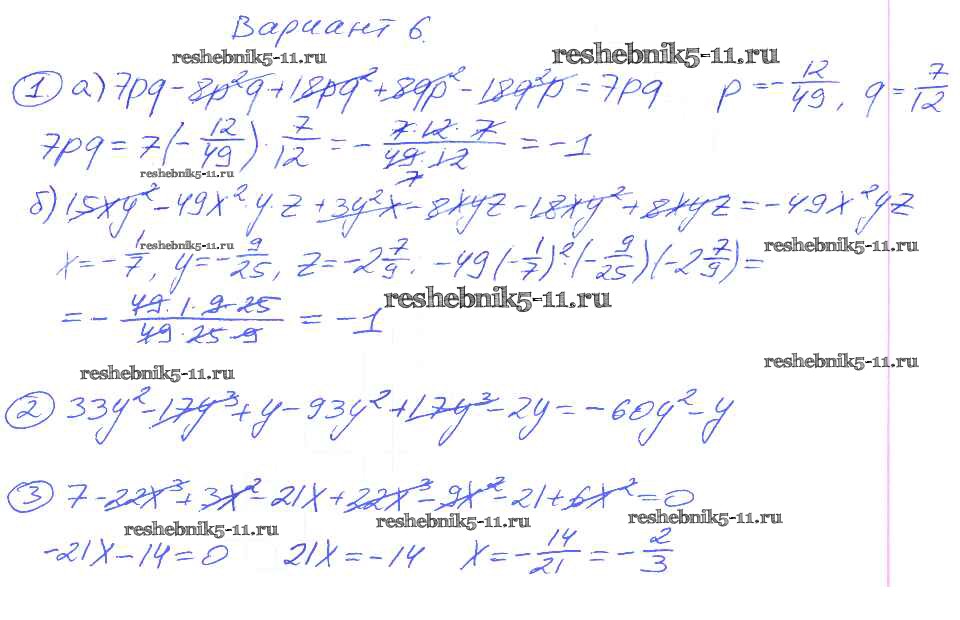 Вариант 6.
reshebnik5-11.ru reshebnik5-11.ru
1. а) 7pq - 8p²q + 18pq² + 8qp² - 18q²p = 7pq p = -12/49, q = 7/12
7pq = 7(-12/49) · 7/12 = - 7·12·7/49·12 = -1
7
reshebnik5-11.ru
б) 15xy² - 49x²·y·z + 3y²x - 8xyz - 18xy² + 8xyz = -49x²yz
reshebnik5-11.ru reshebnik5-11.ru
x = -1/7, y = -9/25, z = -2 7/9. -49(-1/7)²·(-9/25)(-2 7/9) =
reshebnik5-11.ru
= - 49·1·9·25/49·25·9 = -1
reshebnik5-11.ru reshebnik5-11.ru
2 33y² - 17y³ + y - 93y² + 17y³ - 2y = -60y² - y
3 7 - 22x³ + 3x² - 21x + 22x³ - 9x² - 21 + 6x² = 0
reshebnik5-11.ru reshebnik5-11.ru reshebnik5-11.ru
-21x - 14 = 0 21x = -14 x = -14/21 = -2/3